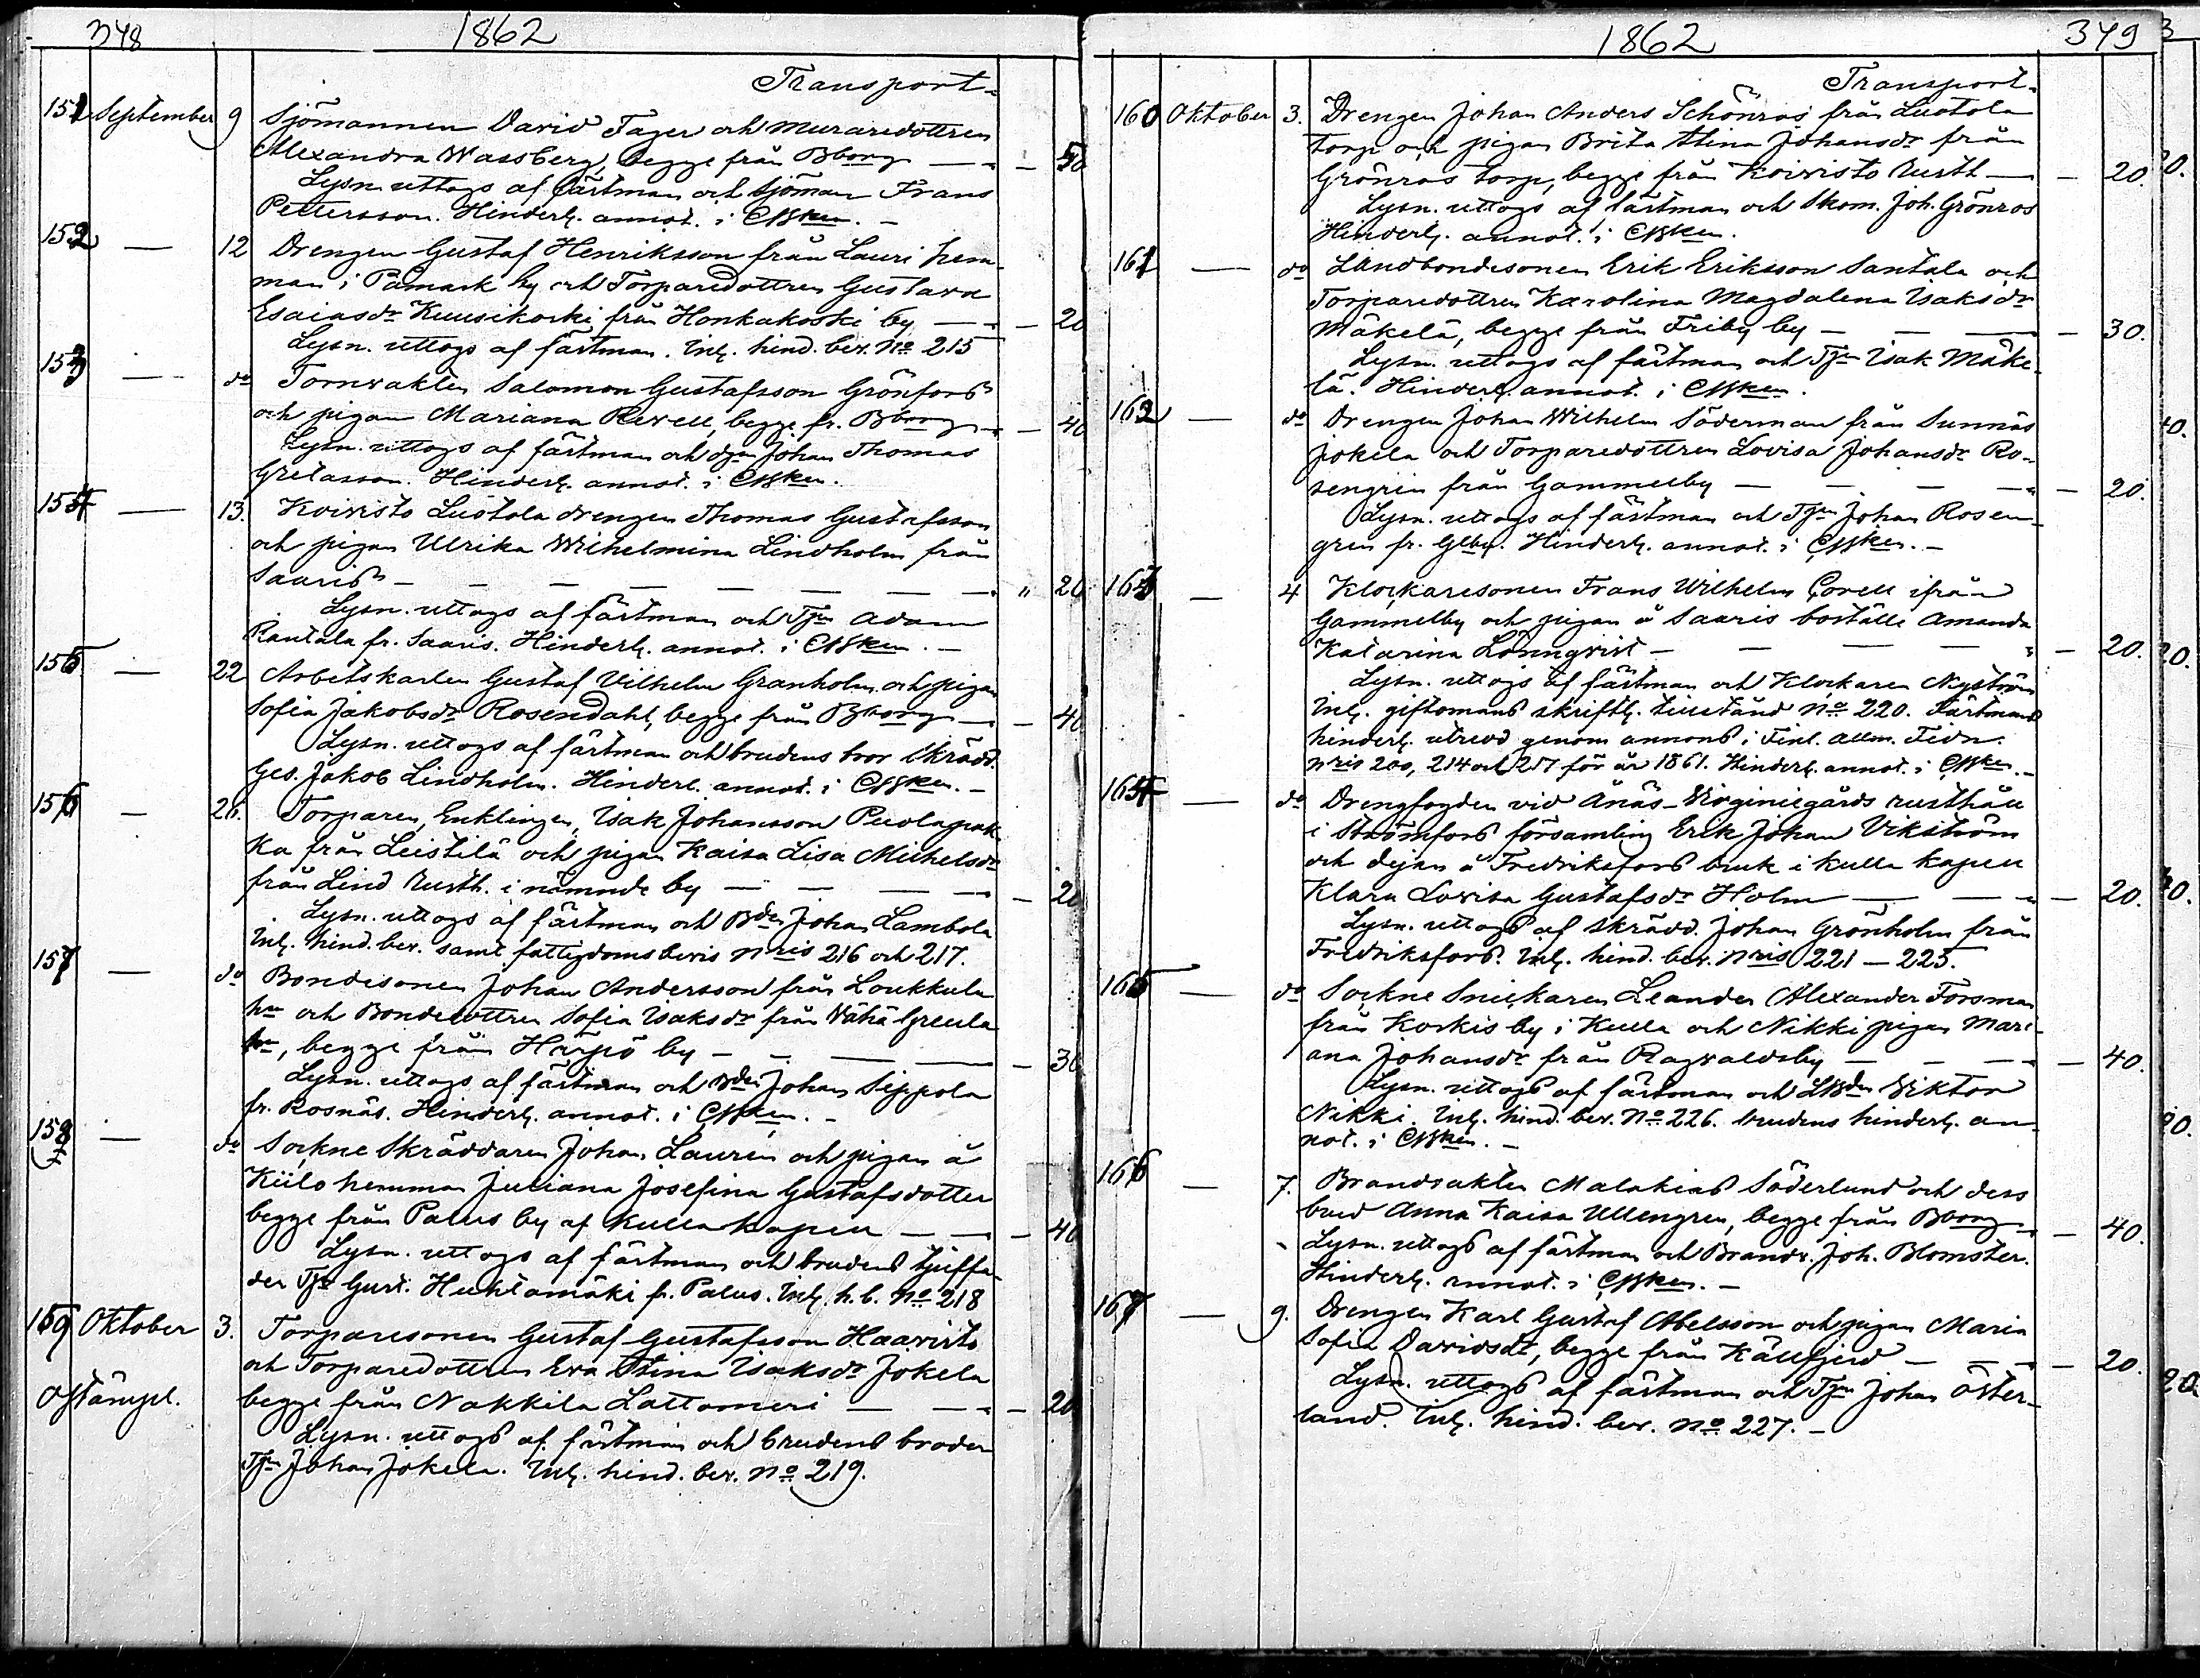 348
1862
Transport.
151 September 9 Sjömannen David Tager och muraredottren
Alexandra Wassberg, begge från Bborg — — 50
Lysn uttogs af fästman och Sjöman Frans
Pettersson. Hinderl. annot. i CBken. —
152 — 12 Drengen Gustaf Henriksson från Lauri hem-
man i Påmark by och Torparedottren Gustava
Esaiasdr Kuusikoski från Honkakoski by — — 20
Lysn. uttogs af fästman. Inl. hind. bev. No 215
153 — do Tornvakten Salomon Gustafsson Grönfors
och pigan Mariana Revell, begge fr. Bborg — 40
Lysn. uttogs af fästman och Johan Thomas
Gretasson. Hinderl. annot. i CBken.
154 — 13. Koivisto Luotola drengen Thomas Gustafsson
och pigan Ulrika Wilhelmina Lindholm från
Saaris — — — — — — " 20
Lysn. uttogs af fästman och Tjn Adam
Rantala fr. Saaris. Hinderl. annot. i CBken. —
155 — 22 Arbetskarlen Gustaf Vilhelm Granholm och pigan
Sofia Jakobsdr Rosendahl, begge från Bborg — — 40
Lysn. uttogs af fästman och brudens bror Skrädd.
Ges. Jakob Lindholm. Hinderl. annot. i CBken. —
156 — 26. Torparen, Enklingen, Isak Johansson Puolapak
ka från Leistilä och pigan Kaisa Lisa Michelsdr
från Lind Rusth. i nämnde by — — — — 20
Lysn. uttogs af fästman och Bden Johan Lambola
Inl. hind. bev. samt fattigdomsbevis Nris 216 och 217.
157 — do Bondesonen Johan Andersson från Loukkula
hn och Bondedottren Sofia Isaksdr från Wähä Greula
hn, begge från Harjo by — — — — 30
Lysn. uttogs af fästman och Bden Johan Sippola
fr. Rosnäs. Hinderl. annot. i CBken. —
158 — do Sockne Skräddaren Johan Laurén och pigan å
Kiilo hemman Juliana Josefina Gustafsdotter
begge från Palus by af Kulla kapell — — — 40
Lysn. uttogs af fästman och brudens tjuffa-
der Tjn Gust. Huhtamäki fr. Palus. Inl. h. b. No 218
159 Oktober 3. Torparesonen Gustaf Gustafsson Haavisto
och Torparedottren Eva Stina Isaksdr Jokela
Ostämpl. begge från Nakkila Lattomeri — — — 20
Lysn. uttogs af fästman och brudens broder
Tjn Johan Jokela. Inl. hind. bev. No 219.
1862
349
Transport.
160 Oktober 3. Drengen Johan Anders Schönros från Luotola
torp och pigan Brita Stina Johansdr från
Grönros torp, begge från Koivisto Rusth — — 20.
Lysn. uttogs af fästman och Skom. Joh. Grönros
Hinderl. annot. i CBken.
161 — do Landbondesonen Erik Eriksson Santala och
Torparedottren Karolina Magdalena Isaksdr
Mäkelä, begge från Friby by — — — — 30.
Lysn. uttogs af fästman och Tjn Isak Mäke-
lä. Hinderl. annot. i CBken.
162 — do Drengen Johan Wilhelm Söderman från Sunnäs
Jokela och Torparedottren Lovisa Johansdr Ro-
sengrén från Gammelby — — — — 20.
Lysn. uttogs af fästman och Tjn Johan Rosen-
gren fr. Glby. Hinderl. annot. i CBken. —
163 — 4 Klockaresonen Frans Wilhelm Corell ifrån
Gammelby och pigan å Saaris boställe Amanda
Katarina Lönnqvist — — — — 20.
Lysn. uttogs af fästman och Klockaren Nyström
Inl. giftomans skriftl. tillstånd No 220. Fästmans
hinderl. utredd genom annons i Finl. Allm. Tidn.
Nris 200, 214 och 217 för år 1861. Hinderl. annot. i CBken. —
164 — do Drengfogden vidÅnäs-Virginiegårds rusthåll
i Strömfors församling Erik Johan Vikström
och dejan å Fredriksfors bruk i Kulla kapell
Klara Lovisa Gustafsdr Holm — — — 20.
Lysn. uttogs af skrädd. Johan Grönholm från
Fredriksfors. Inl. hind. bev. Nris 221 — 225.
165 — do Sockne Snickaren Leander Alexander Forsman
från Koskis by i Kulla och Nikki pigan Mari-
ana Johansdr från Ragvaldsby — — — 40.
Lysn. uttogs af fästman och LBden Viktor
Nikki. Inl. hind. bev. No 226. brudens hinderl. an-
not. i CBken. —
166 — 7. Brandvakten Malakias Söderlund och dess
brud Anna Kaisa Ullengren, begge från Bborg — 40.
Lysn. uttogs af fästman och Brandv. Joh. Blomster.
Hinderl. annot. i CBken. —
167 — 9. Drengen Karl Gustaf Abelsson och pigan Maria
Sofia Davidsdr, begge från Källfjerd — — — 20.
Lysn. uttogs af fästman och Tjn Johan Öster-
land. Inl. hind. bev. No 227. —